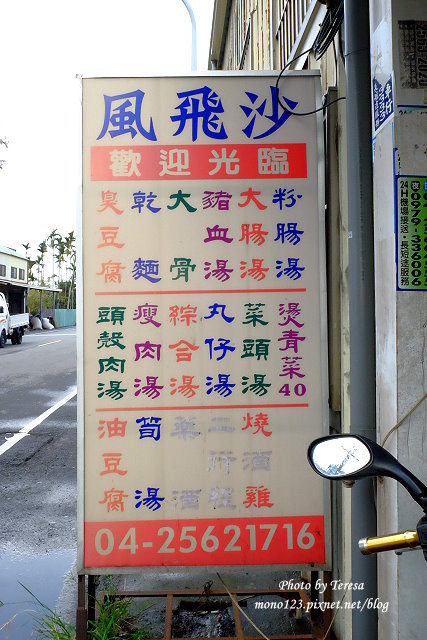 沙飛風
歡迎光臨
粉腸湯
大腸湯
豬血湯
大骨
乾麵
臭豆腐
燙青菜40
菜頭湯
丸仔湯
綜合湯
瘦肉湯
頭殼肉湯
燒酒雞
筍湯
油豆腐
04-25621716
24H機場接送・長短途服務
0979-336006
Photo by Teresa
mono123.pixnet.net/blog